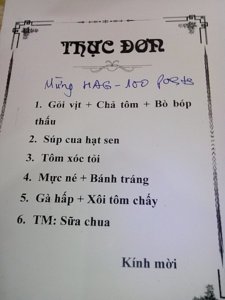 THỰC ĐƠN
Mừng HAG - 100 posts
1. Gỏi vịt + Chả tôm + Bò bóp
thấu
2. Súp cua hạt sen
3. Tôm xóc tỏi
4. Mực né + Bánh tráng
5. Gà hấp + Xôi tôm chấy
6. TM: Sữa chua
Kính mời